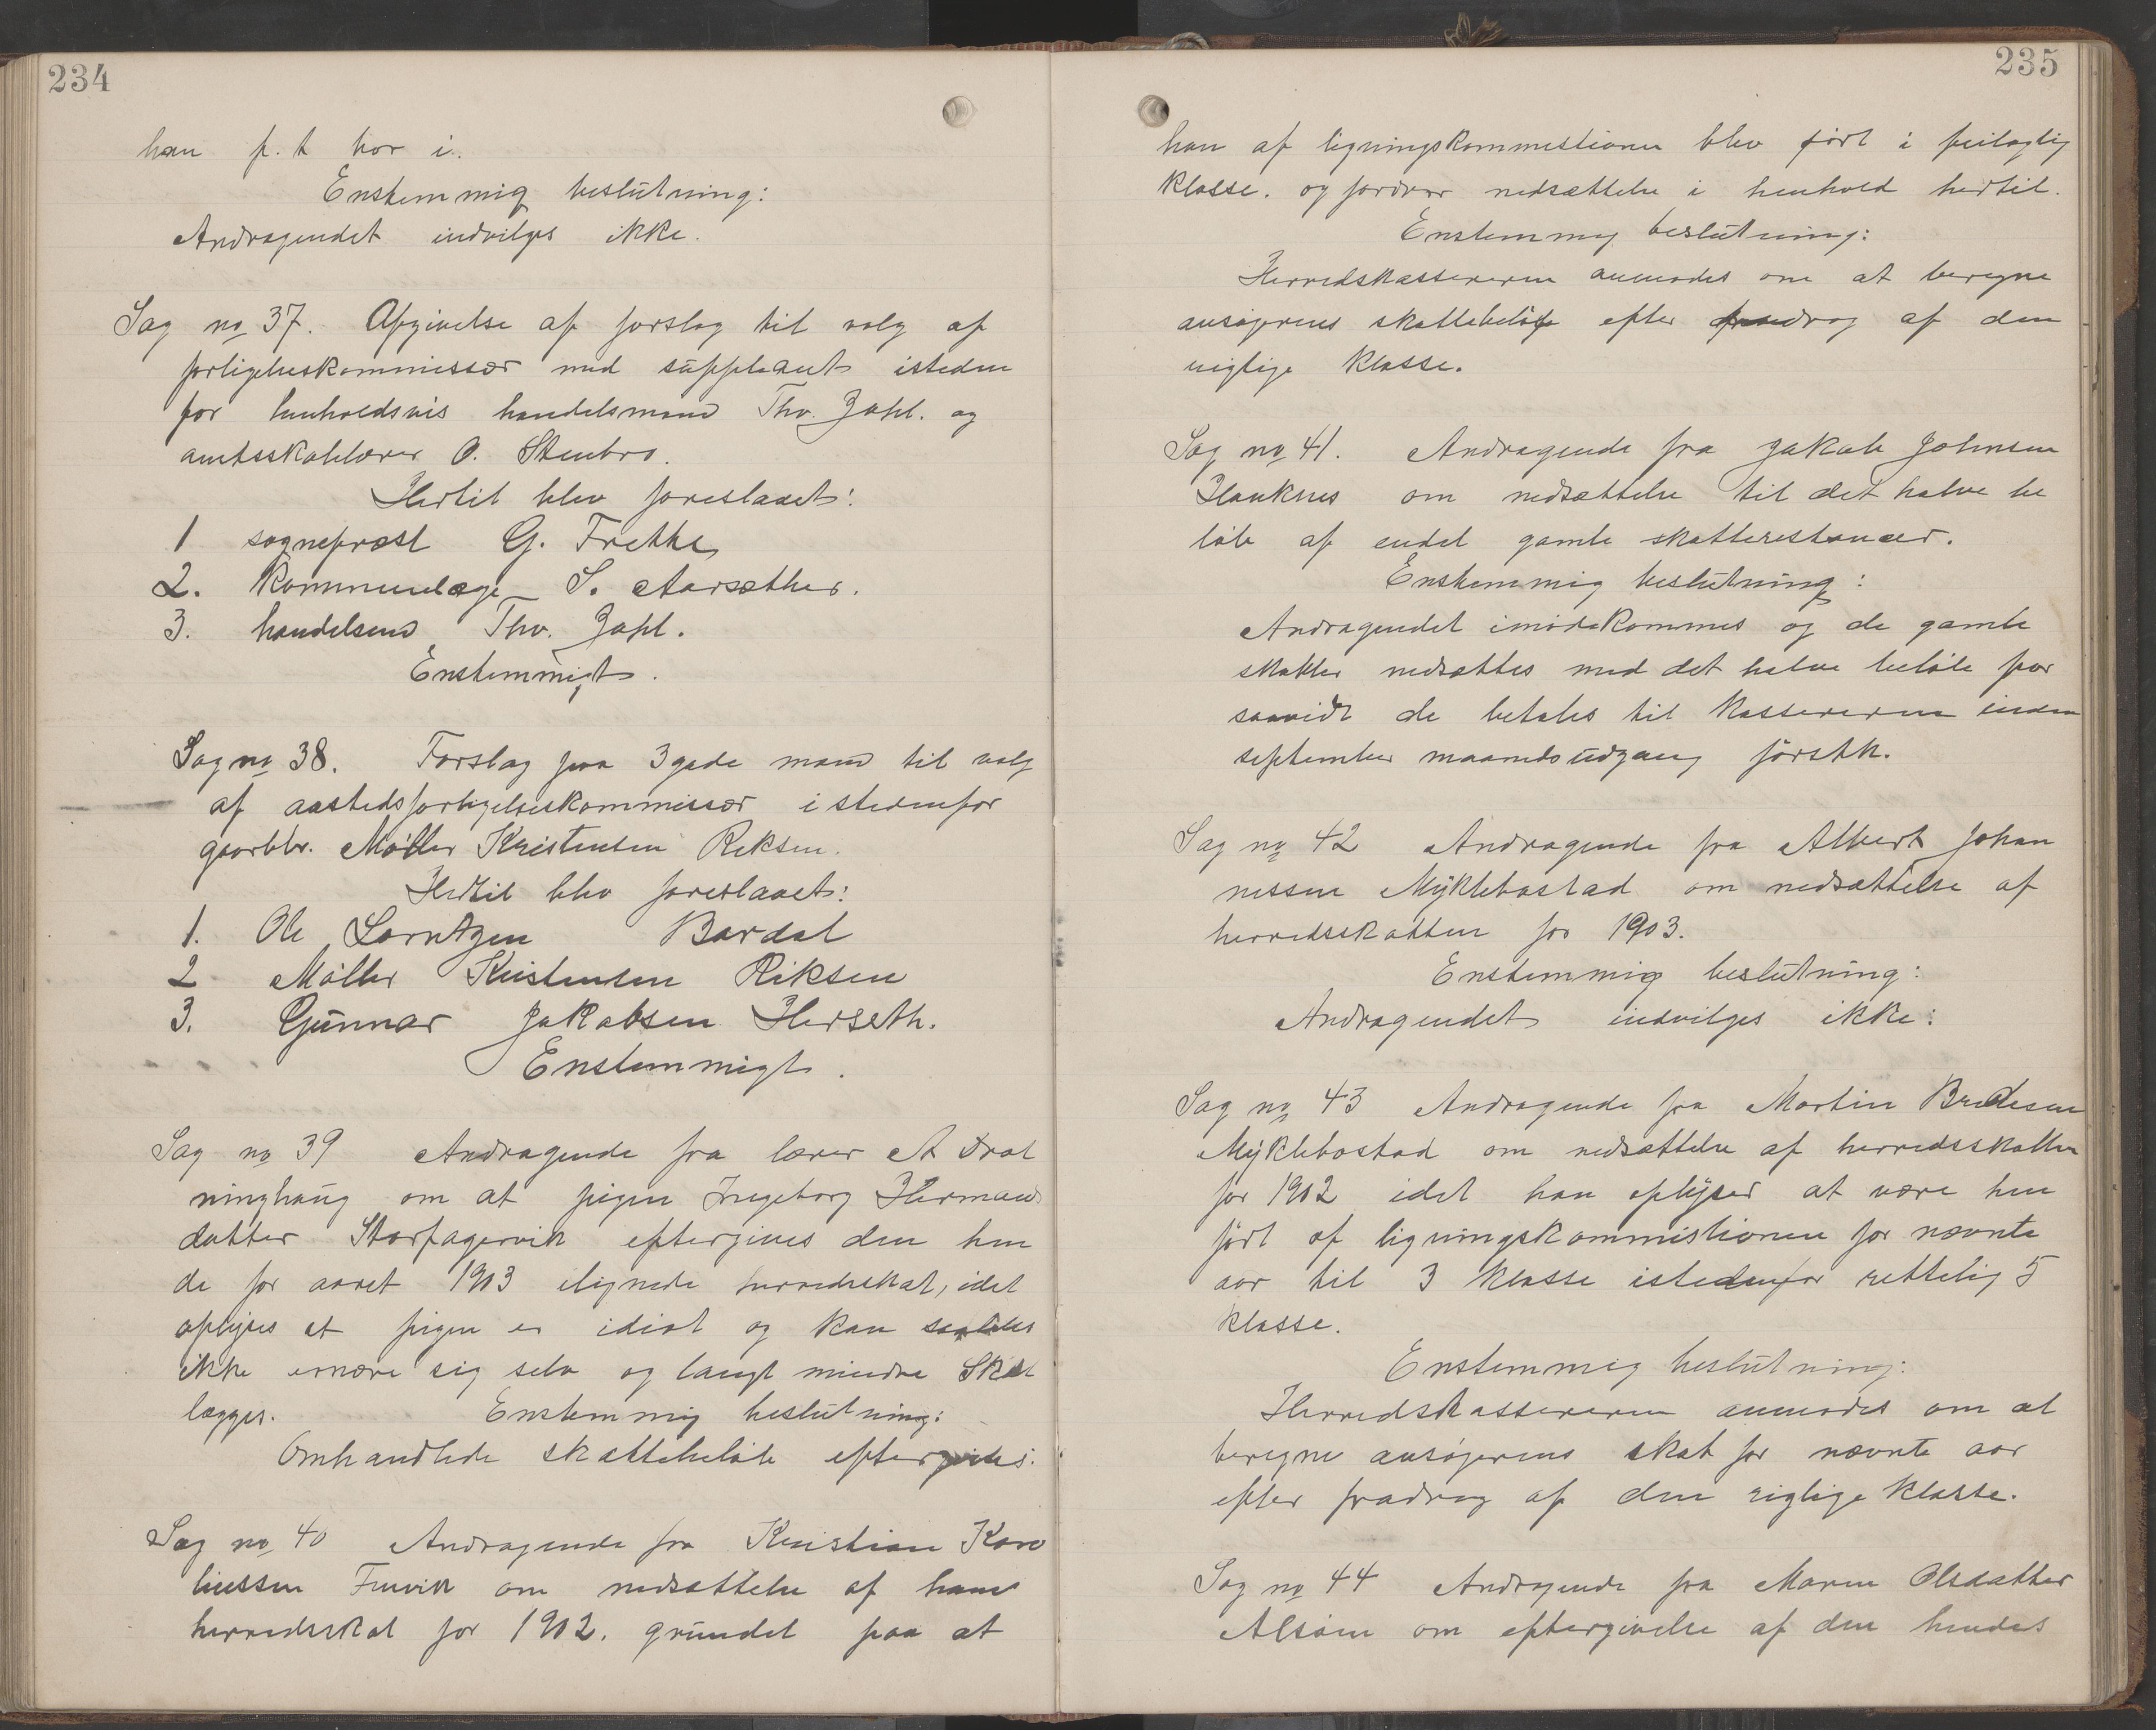 234
han p. t bor i.
Enstemmig beslutning:
Andragendet indvilges ikke.
Sag no 37. Afgivelse af forslag til valg af
forligelseskommissær med suppleant isteden
for henholdsvis handelsmand Thv. Zahl. og
amtsskolelærer O. Stenbro.
Hertil blev foreslaaet:
1 sognepræst G. Frette
2. Kommunelæge S. Aarsæther.
3. handelsmd Thv. Zahl.
Enstemmigt.
Sag no 38. Forslag paa 3 gode mænd til valg
af aastedsforligelseskommissær istedenfor
gaarbbr. Møller Kristensen Reksen.
Hertil blev foreslaaet:
1. Ole Lorntzen Bardal
2 Møller Kristensen Riksen
3. Gunnar Jakobsen Herseth.
Enstemmigt.
Sag no 39 Andragende fra lærer A Drot
ninghaug om at pigen Ingeborg Hermans
datter Storfagervik eftergives den hen
de for aaret 1903 ilignede herredsskat, idet
oplyses at pigen er idiot og kan saaledes
ikke ernære sig selv og langt mindre Skat
lægges. Enstemmig beslutning:
Omhandlede skattebeløb eftergives.
Sag no 40 Andragende fra Kristian Karo
liussen Finvik om nedsættelse af hans
herredsskat for 1902. grundet paa at
235
han af ligningskommistionen blev ført i feilagtig
klasse. og fordrer nedsættelse i henhold hertil.
Enstemmig beslutning:
Herredskassereren anmodes om at beregne
ansøgerens skattebeløb efter fradrag af den
rigtige klasse.
Sag no 41. Andragende fra Jakob Johnsen
Hauknes om nedsættelse til det halve be
løb af endel gamle skatterestancer.
Enstemmig beslutning:
Andragendet imødekommes og de gamle
skatter nedsættes med det halve beløb for
saavidt de betales til kassereren inden
september maaneds udgang førstk.
Sag no 42 Andragende fra Albert Johan
nessen Myklebostad om nedsættelse af
herredsskatten for 1903.
Enstemmig beslutning:
Andragendet indvilges ikke:
Sag no 43 Andragende fra Martin Bredesen
Myklebostad om nedsættelse af herredsskatten
for 1902 idet han oplyser at være hen
ført af ligningskommistionen for nævnte
aar til 3 klasse istedenfor rettelig 5
klasse.
Enstemmig beslutning:
Herredskassereren anmodes om at
beregne ansøgerens skat for nævnte aar
efter fradrag af den rigtige klasse.
Sag no 44 Andragende fra Maren Olsdatter
Alsøen om eftergivelse af den hendes